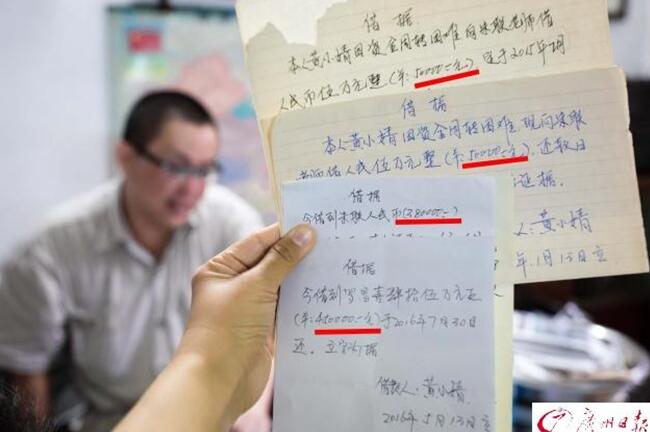 借据
本人黄小婧因资金周转困难向朱联老师借
人民币伍万元整(￥:50000-元)于2015年
借据
本人黄小婧因资金周转困难,现向朱联
老师借人民伍万元整(￥:50000-元).还款日
证据.
人:黄小婧
年1月13日立
借据
今借到朱联人民币(38000-)
借据
今借到 肆拾伍万元正
(￥:450000-元)于2016年7月30日
还。立字为据
借款人:黄小婧
2016年5月13日立
广州日报